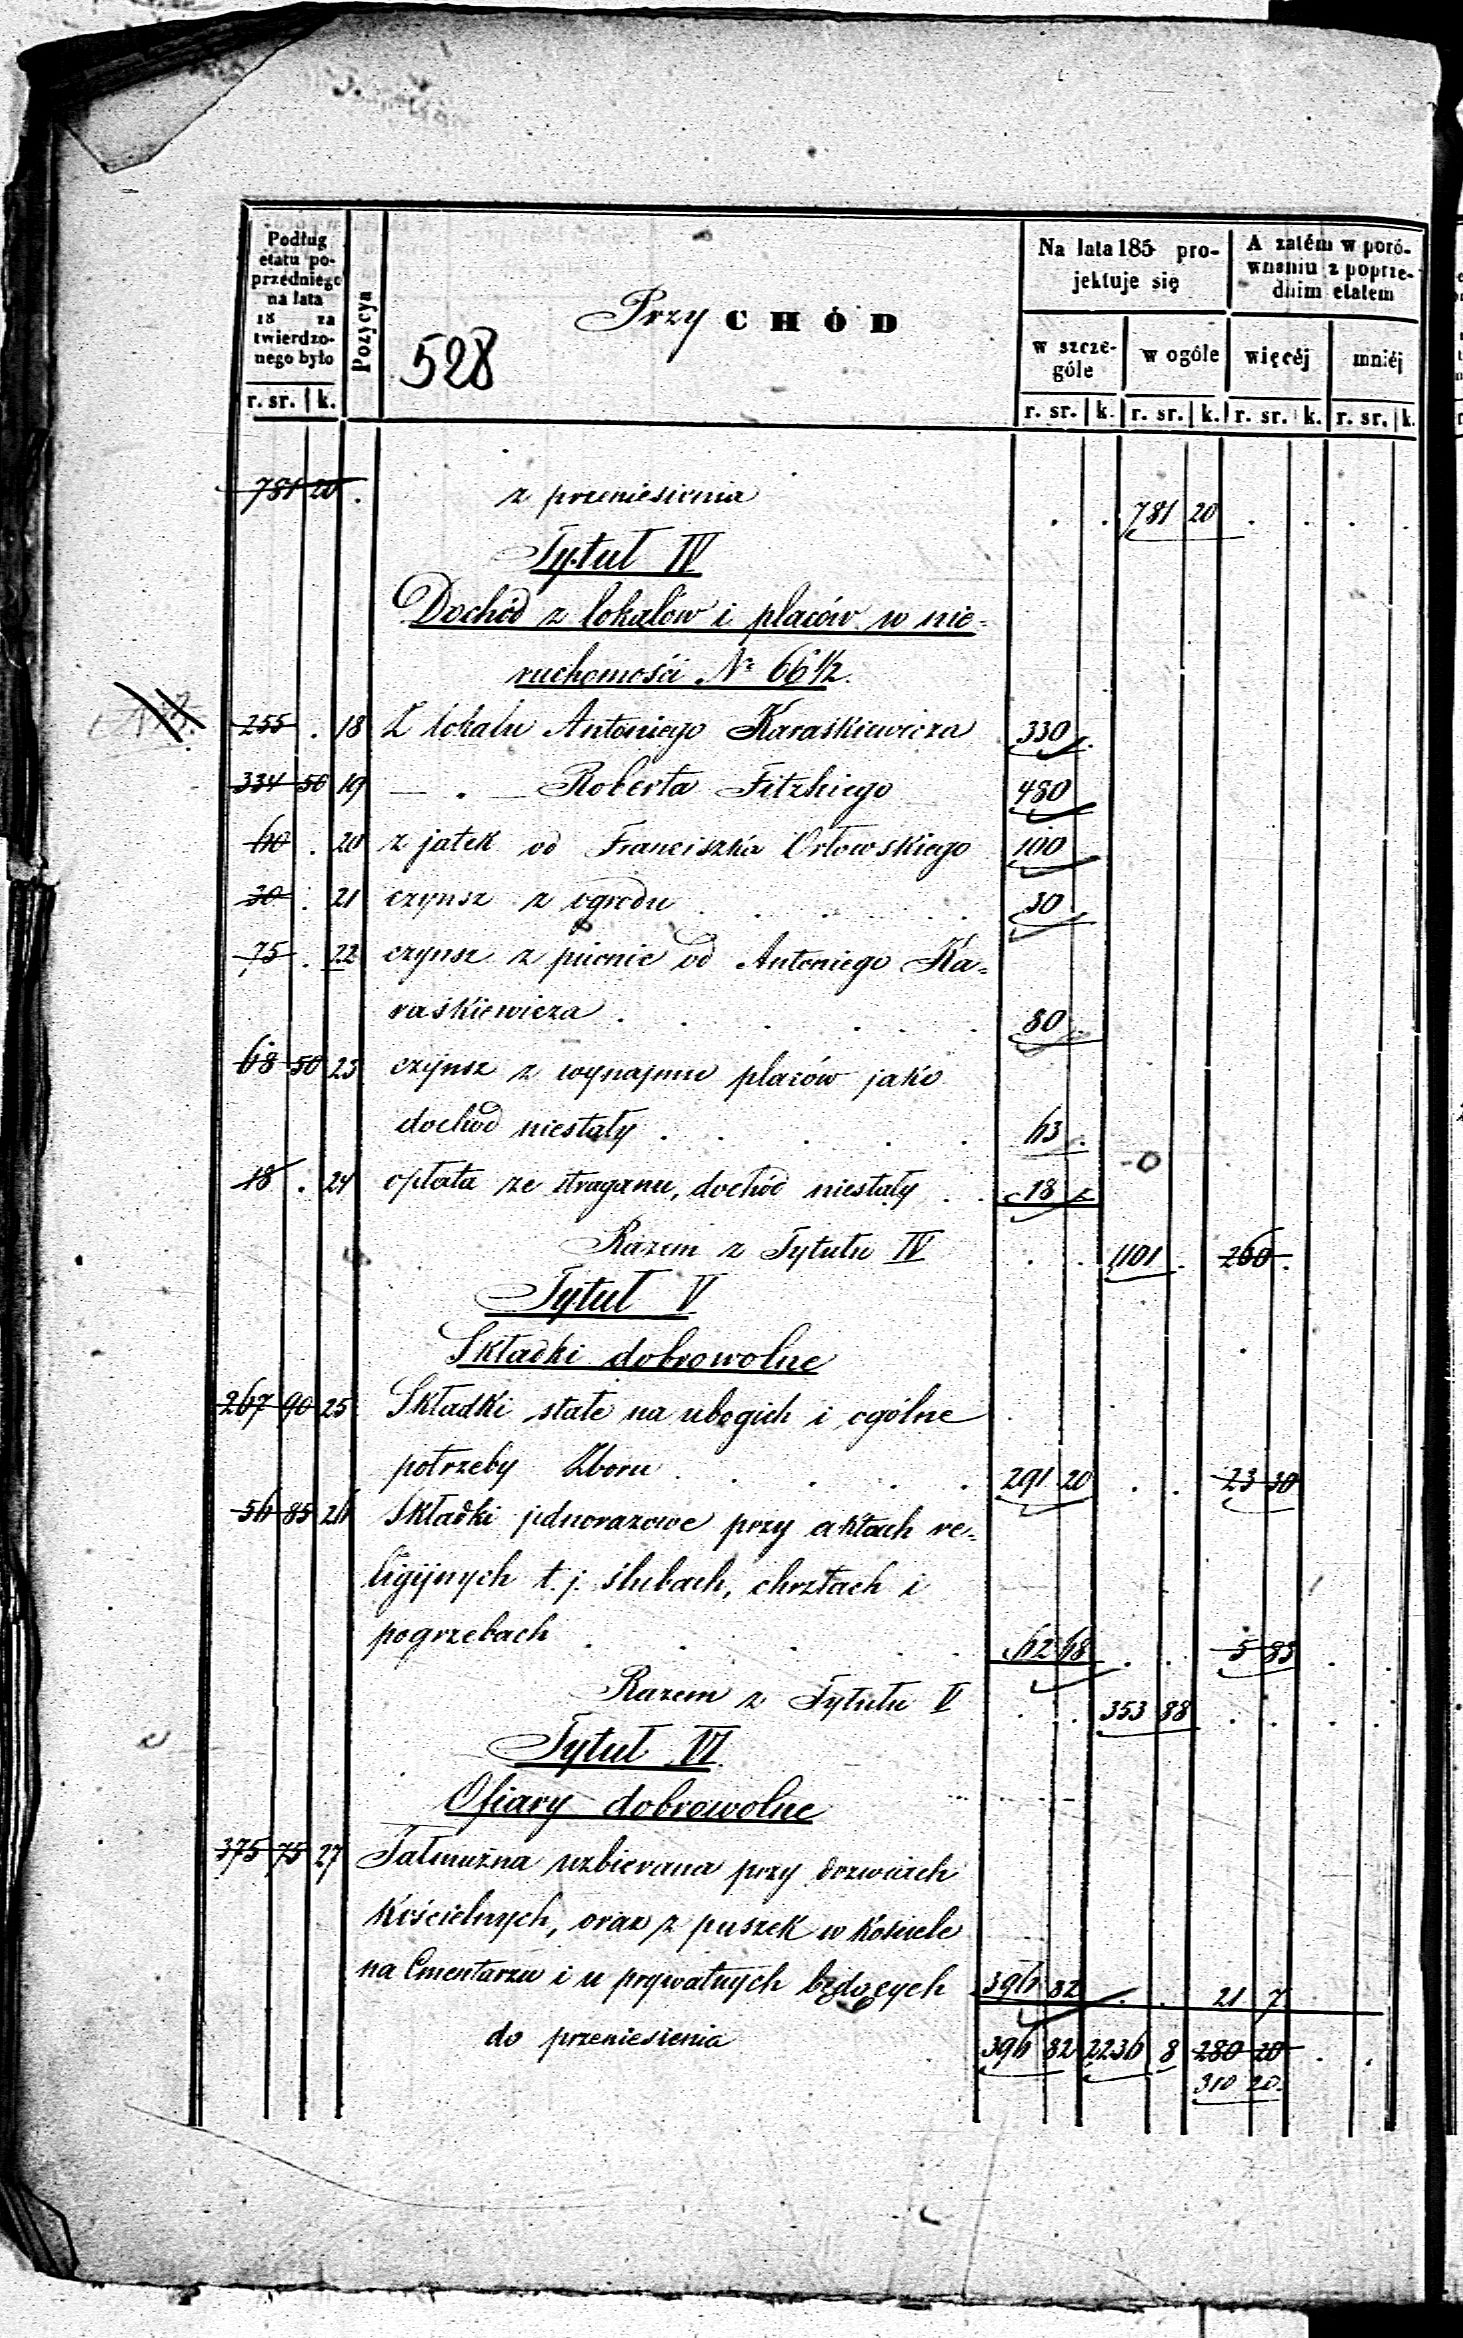 Podług etatu poprzedniego na lata 18 za twierdzonego było
Pozycya
Przy CHÓD
528
Na lata 185 projektuje się
A zatém w porównaniu z poprzednim etatem
w szczególe
w ogóle
więcéj
mniéj
r. sr. k. r. sr. k. r. sr. k. r. sr. k. r. sr. k.
781 20 . z przeniesienia . . 781 20 . . . .
Tytuł IV
Dochód z lokalów i placów w nie=
ruchomości № 66 1/2.
255 . 18 Z lokalu Antoniego Karaśkiewicza 330 .
334 50 19 — „ — Roberta Fitzkiego 480
60 . 20 z jatek od Franciszka Orłowskiego 100
30 . 21 czynsz z ogrodu . . . . 30
75 . 22 czynsz z piwnic od Antoniego Ka=
raśkiewicza . . . . . . 80
68 50 23 czynsz z wynajmu placów jako
dochód niestały . . . . . 63 .
18 . 24 opłata ze straganu, dochód niestały . . 18
Razem z Tytułu IV . . 1101 . 260 .
Tytuł V
Składki dobrowolne
267 90 25 Składki stałe na ubogich i ogólne
potrzeby Zboru . . . . . 291 20 . . 23 30
56 85 26 Składki jednorazowe przy aktach re=
ligijnych t. j. ślubach, chrztach i
pogrzebach . . . . . 62 68 . . 5 83 . .
Razem z Tytułu V . . 353 88 . . . .
Tytuł VI
Ofiary dobrowolne
375 75 27 Jałmużna uzbierana przy drzwiach
Kościelnych, oraz z puszek w Kościele
na Cmentarzu i u prywatnych będących 396 82 . . 21 7
do przeniesienia 396 82 2236 8 280 20 . .
310 20